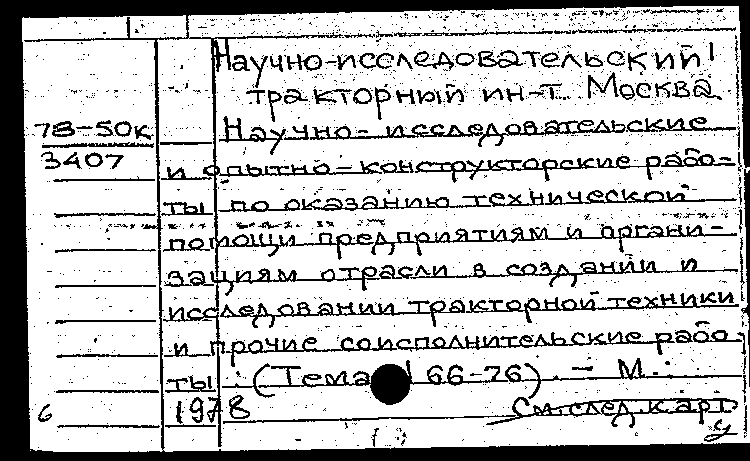 Научно-исследовательский
тракторный ин-т. Москва.
78-50к
Научно-исследовательские
3407
и опытно-конструкторские рабо-
ты по оказанию технической
помощи предприятиям и органи-
зациям отрасли в создании и
исследовании тракторной техники
и прочие соисполнительские рабо-
ты. (Тема 66-76). — М.:
6
1978
См. след. карт.